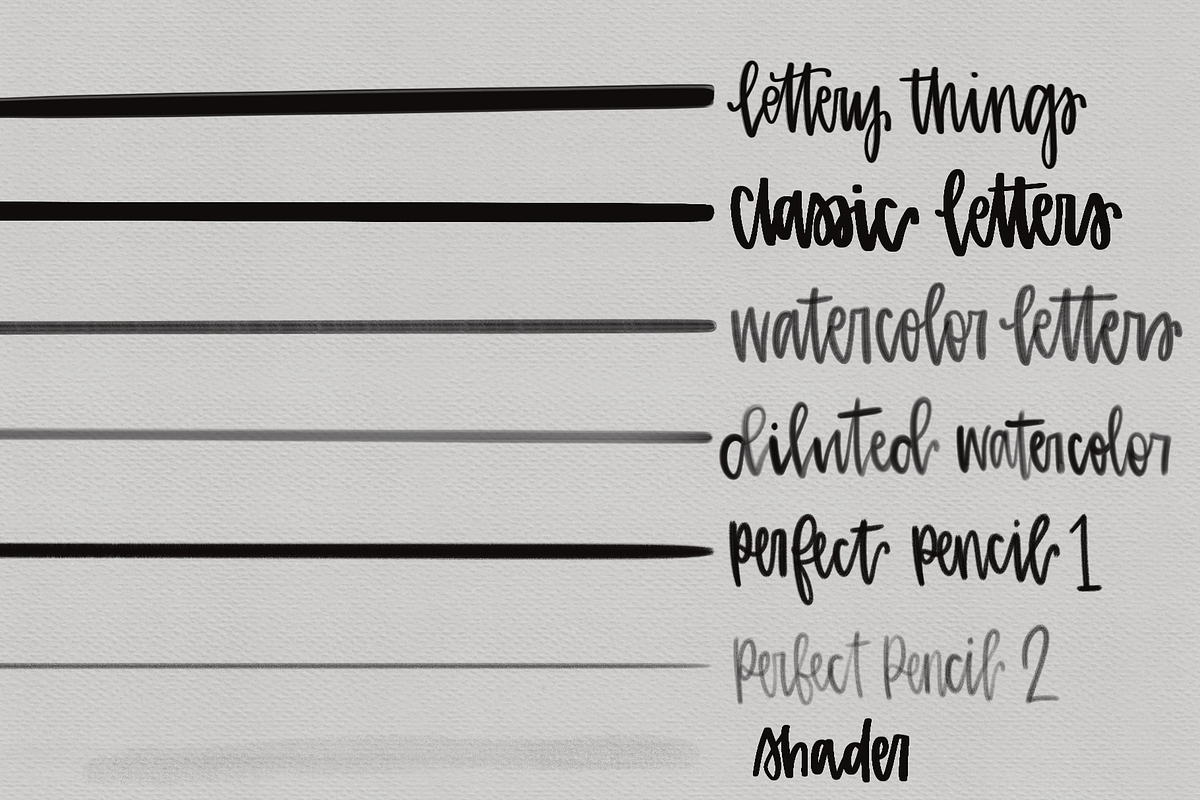 lettery things
classic letters
watercolor letters
diluted watercolor
perfect pencil 1
perfect pencil 2
shader